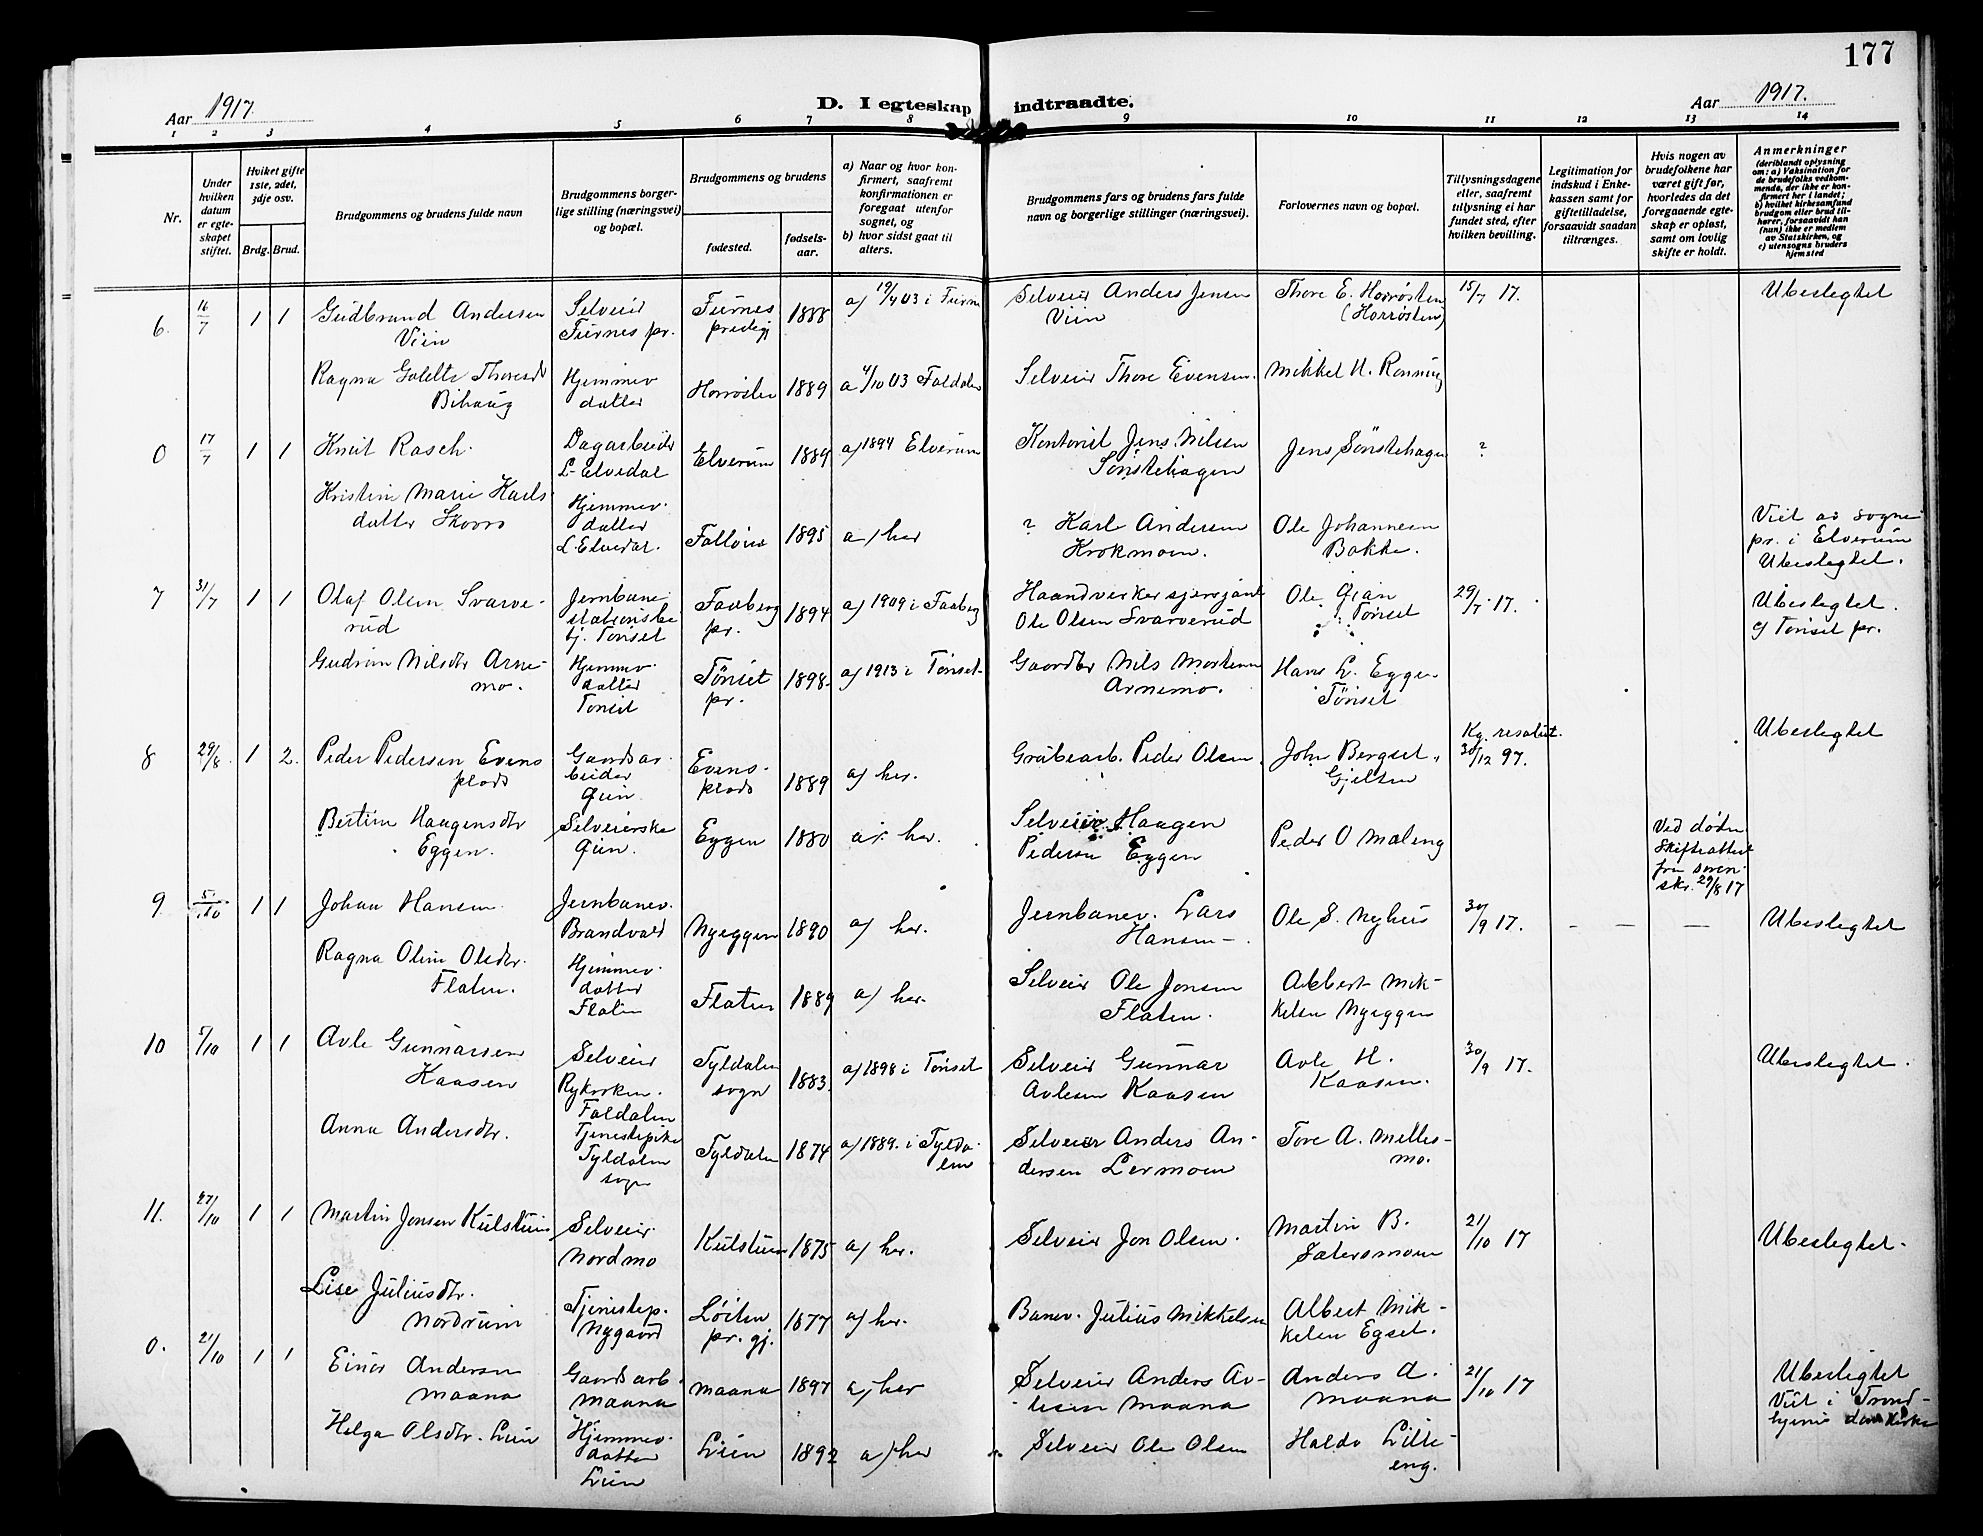 177
Aar 1917.
D. I egteskap indtraadte.
Aar 1917.
1 2 3 4 5 6 7 8 9 10 11 12 13 14
Nr.
Under hvilken datum er egteskapet stiftet.
Hvilket gifte 1ste, 2det, 3dje osv.
Brdg. Brud.
Brudgommens og brudens fulde navn
Brudgommens borgerlige stilling (næringsvei) og bopæl.
Brudgommens og brudens
fødested.
fødselsaar.
a) Naar og hvor konfirmert, saafremt konfirmationen er foregaat utenfor sognet, og
b) hvor sidst gaat til alters.
Brudgommens fars og brudens fars fulde navn og borgerlige stillinger (næringsvei).
Forlovernes navn og bopæl.
Tillysningsdagene eller, saafremt tillysning ei har fundet sted, efter hvilken bevilling.
Legitimation for indskud i Enkekassen samt for giftetilladelse, forsaavidt saadan tiltrænges.
Hvis nogen av brudefolkene har været gift før, hvorledes da det foregaaende egteskap er opløst, samt om lovlig skifte er holdt.
Anmerkninger
(deriblandt oplysning om: a) Vaksination for de brudefolks vedkommende, der ikke er konfirmert her i landet; b) hvilket kirkesamfund brudgom eller brud tilhører, forsaavidt han (hun) ikke er medlem av Statskirken, og c) utensogns bruders hjemsted
6. 16/7 1 1 Gudbrand Andersen Selveier Furnes 1888 a/ 19/4 03 i Furnes Selveier Anders Jensen Thore E. Horrösten 15/7 17. Ubeslegtet
Viin Furnes pr. prestegj Viin (Horrösten)
Ragna Thoresdt Hjemmev Horrösten 1889 a 4/10 03 Foldalen Selveier Thore Evensen. Mikkel H. Rønning
Bihaug datter
0 17/7 1 1 Knut Rasch. Dagarbeider Elverum 1889 a/ 1894 Elverum Kontorist Jens Nilsen Jens Sönstehagen ?
L. Elvedal Sönstehagen
Kristine Marie Karls Hjemmev. Follöien 1895 a/ her ? Karl Andersen Ole Johannesen Viet av sogne
datter Skovro datter Krokmoen. Bakke. pr. i Elverum
L. Elvedal. Ubeslegtet.
7 31/7 1 1 Olaf Olsen Svarve- Jernbane Faaberg 1894 a/ 1909 i Faaberg Haandverkersjersjant Ole Qian 29/7 17. Ubeslegtet.
rud stationsbe pr. Ole Olsen Svarverud Tönset c/ Tönset pr.
tj. Tönset
Gudrun Nilsdtr Arne- Hjemmev. Tönset 1898. a/ 1913 i Tönset. Gaardbr Nils Mortensen Hans L. Eggen
mo. datter pr. Arnemo. Tönset
Tönset
8 29/8 1 2. Peder Pedersen Evens Gaardsar- Evens- 1889 a/ her. Grubearb. Peder Olsen. John Bergset, Kg. resolut. Ubeslegtet
plads beider plads Gjelten 30/12 97.
Qvin
Bertine Haagensdtr Selveierske Eggen 1880 a/ her. Selveier Haagen Peder O Maleng Ved döden
Eggen. Qvin. Pedersen Eggen Skifteattest
fra soren-
skr. 29/8 17
9. 5/10 1 1 Johan Hansen Jernbanev. Nyeggen 1890 a/ her. Jernbanev. Lars Ole S. Nyhus 30/9 17. - - — Ubeslegtet
Brandvold Hansen-
Ragna Oline Olsdtr. Hjemmev. Flaten 1889 a/ her. Selveier Ole Jonsen Albert Mik-
Flaten. datter Flaten. kelsen Nyeggen
Flaten
10 5/10 1 1 Avle Gunnarsen Selveier Tyldalen 1883. a/ 1898 i Tönset Selveier Gunnar Avle H. 30/9 17. Ubeslegtet.
Kaasen Rykroken. sogn Avlesen Kaasen Kaasen.
Foldalen
Anna Andersdtr. Tjenestepike Tyldalen 1874 a/ 1889. i Tylda- Selveier Anders An- Tore A. Melles-
Tyldalen len dersen Lermoen mo.
sogn
11. 27/10 1 1 Martin Jonsen Kulstuen Selveier Kulstuen 1875 a/ her. Selveier Jon Olsen. Martin B. 21/10 17 Ubeslegtet.
Nordmo Sætersmoen
Lise Juliusdtr. Tjenestep. Löiten 1877 a/ her. Banev. Julius Mikkelsen Albert Mik-
Nordrum Nygaard pr. gj. kelsen Egset.
0. 21/10 1 1 Einar Andersen Gaardsarb. Maana 1897 a/ her Selveier Anders Av- Anders A. 21/10 17 Ubeslegtet
Maana Maana lesen Maana Maana Viet i Trond-
Helga Olsdtr. Lien Hjemmev. Lien 1892 a/ her Selveier Ole Olsen Haldo Lille- hjems domkirke
datter eng.
Lien